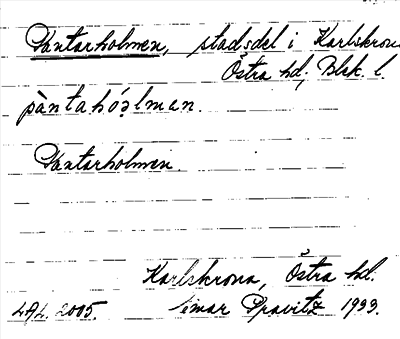 Pantarholmen, stadsdel i Karlskrona
Östra hd, Blek. l.
pàntahó₂lman.
Pantarholmen.
Karlskrona, Östra hd.
LAL. 2005. Einar Pravitz 1933.